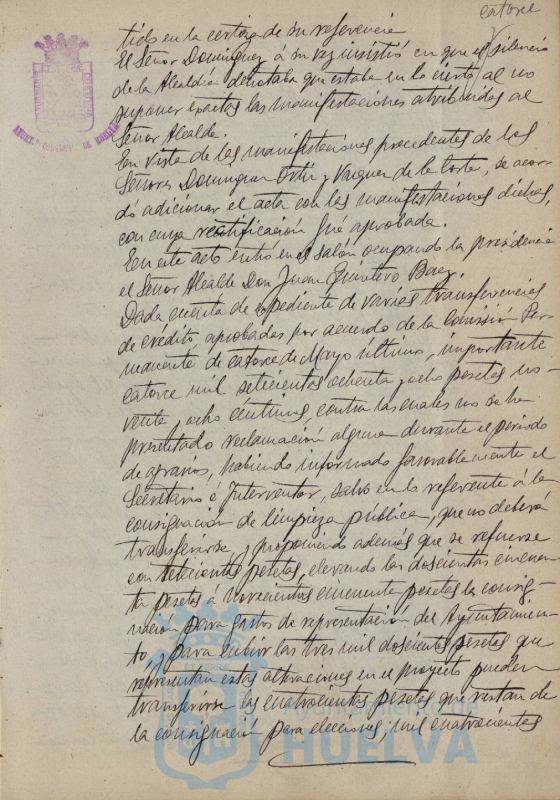 catorce
tido en la certeza de su referencia
El Señor Dominguez á su vez insistió en que el silencio
de la Alcaldia denotaba que estaba en lo cierto al no
suponer exactas las manifestaciones atribuidas al
Señor Alcalde.
En vista de las manifestaciones precedentes de los
Señores Dominguez Ortiz y Vazquez de la Corte, se acor-
dó adicionar el acta con las manifestaciones dichas,
con cuya rectificación fué aprobada.
En este acto entró en el salón ocupando la presidencia
el Señor Alcalde Don Juan Quintero Baez.
Dada cuenta de expediente de varias transferencias
de crédito, aprobadas por acuerdo de la Comisión Per-
manente de catorce de Mayo último, importante
catorce mil setecientas ochenta y ocho pesetas no-
venta y ocho centimos, contra las cuales no se ha
presentado reclamación alguna durante el periodo
de agravios, habiendo informado favorablemente el
Secretario é Interventor, salvo en lo referente á la
consignación de limpieza pública, que no deberá
transferirse, y proponiendo además que se refuerse
con setecientas pesetas, elevando las doscientas cincuen-
ta pesetas á novecientas cincuenta pesetas la consig-
nación para gastos de representación del Ayuntamien-
to, y para cubrir las tres mil doscientas pesetas que
representan estas alteraciones en el proyecto pueden
transferirse las cuatrocientas pesetas que restan de
la consignación para elecciones; mil cuatrocientas
Ayuntamiento de
HUELVA